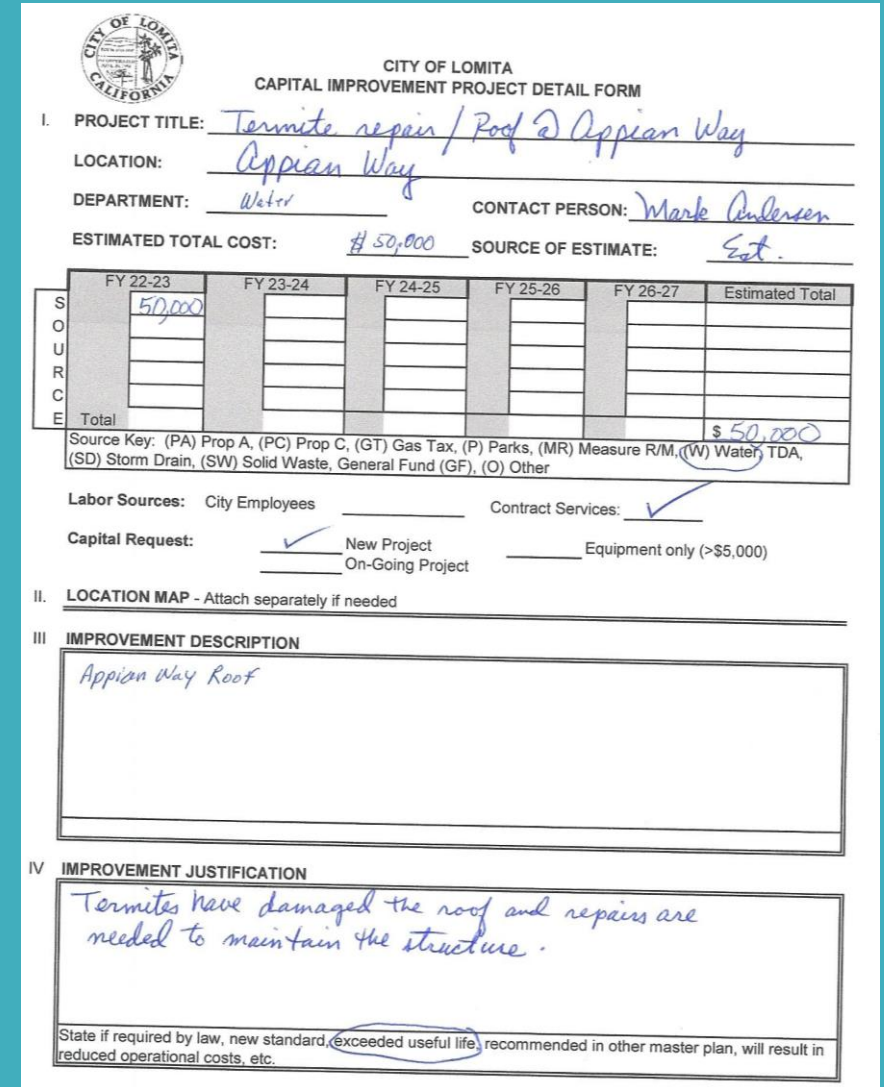 CITY OF LOMITA
CALIFORNIA
CITY OF LOMITA
CAPITAL IMPROVEMENT PROJECT DETAIL FORM
I. PROJECT TITLE: Termite repair / Roof @ Appian Way
LOCATION: Appian Way
DEPARTMENT: Water CONTACT PERSON: Mark Andersen
ESTIMATED TOTAL COST: $ 50,000 SOURCE OF ESTIMATE: Est.
FY 22-23 FY 23-24 FY 24-25 FY 25-26 FY 26-27 Estimated Total
SOURCE
50,000
Total $ 50,000
Source Key: (PA) Prop A, (PC) Prop C, (GT) Gas Tax, (P) Parks, (MR) Measure R/M, (W) Water, TDA,
(SD) Storm Drain, (SW) Solid Waste, General Fund (GF), (O) Other
Labor Sources: City Employees Contract Services: ✓
Capital Request: ✓ New Project Equipment only (>$5,000)
On-Going Project
II. LOCATION MAP - Attach separately if needed
III IMPROVEMENT DESCRIPTION
Appian Way Roof
IV IMPROVEMENT JUSTIFICATION
Termites have damaged the roof and repairs are
needed to maintain the structure.
State if required by law, new standard, exceeded useful life, recommended in other master plan, will result in
reduced operational costs, etc.